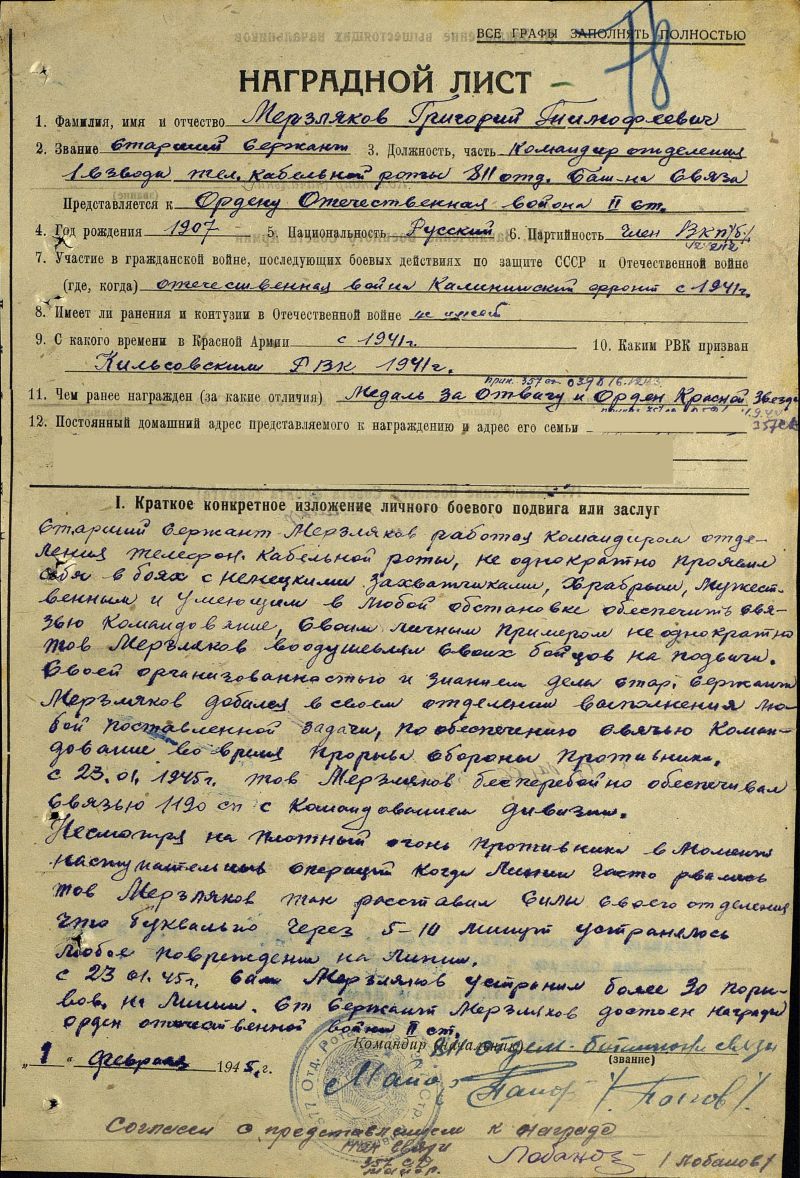 ВСЕ ГРАФЫ ЗАПОЛНЯТЬ ПОЛНОСТЬЮ
78
НАГРАДНОЙ ЛИСТ
1. Фамилия, имя и отчество Мерзляков Григорий Тимофеевич
2. Звание Старший Сержант 3. Должность, часть Командир отделения
1 взвода тел. кабельной роты 811 отд. Бат-на Связи
Представляется к Ордену Отечественная война II ст.
4. Год рождения 1907 5. Национальность Русский 6. Партийность член ВКП/б/
7. Участие в гражданской войне, последующих боевых действиях по защите СССР и Отечественной войне
(где, когда) отечественная война Калининский фронт с 1941г.
8. Имеет ли ранения и контузии в Отечественной войне не имеет
9. С какого времени в Красной Армии с 1941г. 10. Каким РВК призван
Кильсовским РВК 1941г.
11. Чем ранее награжден (за какие отличия) Медаль За Отвагу и Орден Красной Звезды
12. Постоянный домашний адрес представляемого к награждению и адрес его семьи
I. Краткое конкретное изложение личного боевого подвига или заслуг
Старший Сержант Мерзляков работая командиром отде-
ления телефон. кабельной роты, не однократно проявил
себя в боях с немецкими захватчиками, храбрым, мужест-
венным и умеющим в любой обстановке обеспечить свя-
зью Командование, Своим личным примером не однократно
тов Мерзляков воодушевлял своих бойцов на подвиги.
Своей организованностью и знанием дела стар. Сержант
Мерзляков добился в своем отделении выполнения лю-
бой поставленной задачи, по обеспечению связью Коман-
дование во время прорыва обороны противника.
с 23.01.1945г. тов Мерзляков бесперебойно обеспечивал
связью 1190 сп с Командованием дивизии.
Несмотря на плотный огонь противника в момент
наступательных операций когда линии часто рвались
тов Мерзляков так расставил силы своего отделения
что буквально через 5-10 минут устранялось
любое повреждение на линии.
с 23.01.45г. сам Мерзляков устранил более 30 поры-
вов на линии. Ст Сержант Мерзляков достоен награды
орден отечественной войны II ст.
Командир (начальник) 811 отдельн. батальона связи
(звание)
"1" февраля 1945г.
Майор /Попов/
Согласен с представлением к награде
Нач связи
357 СД
майор. Лобанов /Лобанов/